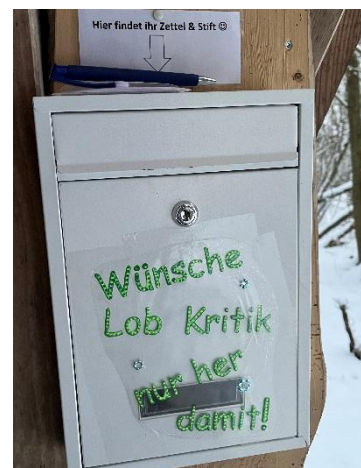 Hier findet ihr Zettel & Stift ☺
Wünsche
Lob Kritik
nur her
damit!